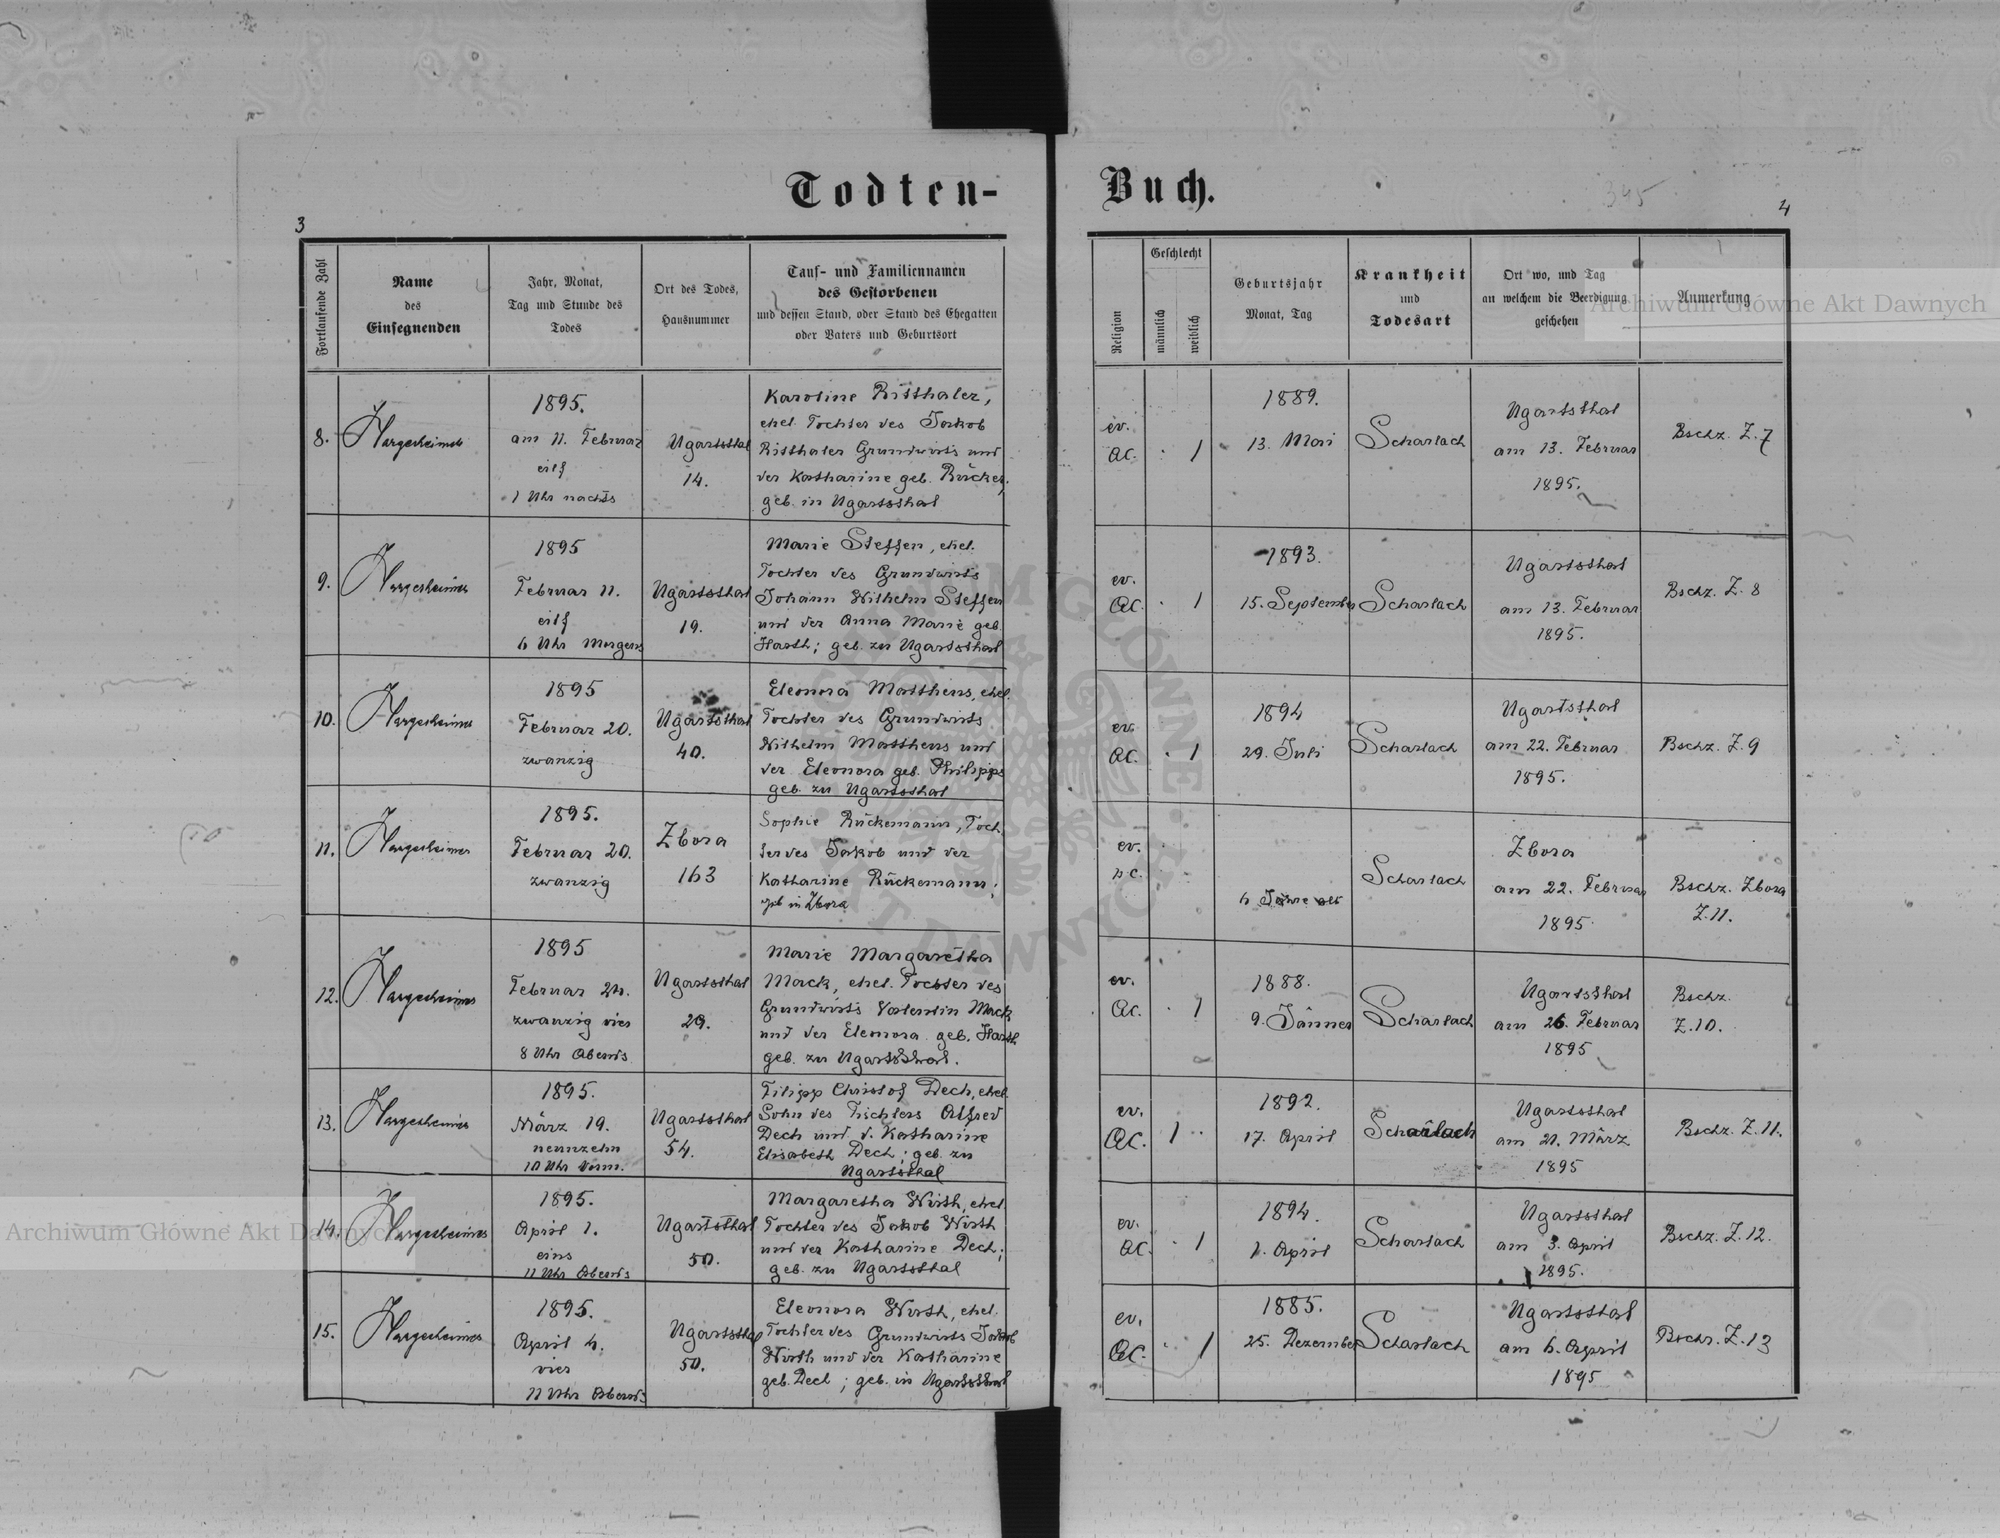 Todten-
Buch.
345
3
4
Fortlaufende Zahl
Name
des
Einsegnenden
Jahr, Monat,
Tag und Stunde des
Todes
Ort des Todes,
Hausnummer
Tauf- und Familiennamen
des Gestorbenen
und dessen Stand, oder Stand des Ehegatten
oder Vaters und Geburtsort
Religion
Geschlecht
männlich
weiblich
Geburtsjahr
Monat, Tag
Krankheit
und
Todesart
Ort wo, und Tag
an welchem die Beerdigung
geschehen
Anmerkung
Archiwum Główne Akt Dawnych
8.
Hargesheimer
1895.
am 11. Februar
eilf
1 Uhr nachts
Ugartsthal
14.
Karoline Ritthaler,
ehel. Tochter des Jakob
Ritthaler Grundwirts und
der Katharine geb. Rücker,
geb. in Ugartsthal
ev.
AC.
1
1889.
13. Mai
Scharlach
Ugartsthal
am 13. Februar
1895.
Bschz. Z. 7
9.
Hargesheimer
1895
Februar 11.
eilf
6 Uhr Morgens
Ugartsthal
19.
Marie Steffen, ehel.
Tochter des Grundwirts
Johann Wilhelm Steffen
und der Anna Marie geb.
Harth; geb. zu Ugartsthal
ev.
AC.
1
1893.
15. September
Scharlach
Ugartsthal
am 13. Februar
1895.
Bschz. Z. 8
10.
Hargesheimer
1895
Februar 20.
zwanzig
Ugartsthal
40.
Eleonora Mattheus, ehel.
Tochter des Grundwirts
Wilhelm Mattheus und
der Eleonora geb. Philipps
geb. zu Ugartsthal
ev.
AC.
1
1894
29. Juli
Scharlach
Ugartsthal
am 22. Februar
1895.
Bschz. Z. 9
11.
Hargesheimer
1895.
Februar 20.
zwanzig
Zbora
163
Sophie Rückemann, Toch
ter des Jakob und der
Katharine Rückemann;
geb in Zbora
ev.
6 Jahre alt
Scharlach
Zbora
am 22. Februar
1895
Bschz. Zbora
Z. 11.
12.
Hargesheimer
1895
Februar 24.
zwanzig vier
8 Uhr Abends
Ugartsthal
29.
Marie Margaretha
Mack, ehel. Tochter des
Grundwirts Valentin Mack
und der Eleonora geb. Harth
geb. zu Ugartsthal.
ev.
AC.
1
1888.
9. Jänner
Scharlach
Ugartsthal
am 26. Februar
1895
Bschz.
Z. 10.
13.
Hargesheimer
1895.
März 19.
neunzehn
10 Uhr Vorm.
Ugartsthal
54.
Filipp Christof Dech, ehel.
Sohn des Tischlers Alfred
Dech und d. Katharine
Elisabeth Dech; geb. zu
Ugartsthal
ev.
AC.
1
1892.
17. April
Scharlach
Ugartsthal
am 21. März
1895
Bschz. Z. 11.
14.
Hargesheimer
1895.
April 1.
eins
11 Uhr Abends
Ugartsthal
50.
Margaretha Wirth, ehel.
Tochter des Jakob Wirth
und der Katharine Dech;
geb. zu Ugartsthal
ev.
AC.
1
1894.
1. April
Scharlach
Ugartsthal
am 3. April
1895.
Bschz. Z. 12.
15.
Hargesheimer
1895.
April 4.
vier
11 Uhr Abends
Ugartsthal
50.
Eleonora Wirth, ehel.
Tochter des Grundwirts Jakob
Wirth und der Katharine
geb. Dech; geb. in Ugartsthal
ev.
AC.
1
1885.
25. Dezember
Scharlach
Ugartsthal
am 6. April
1895
Bschz. Z. 13
Archiwum Główne Akt Dawnych